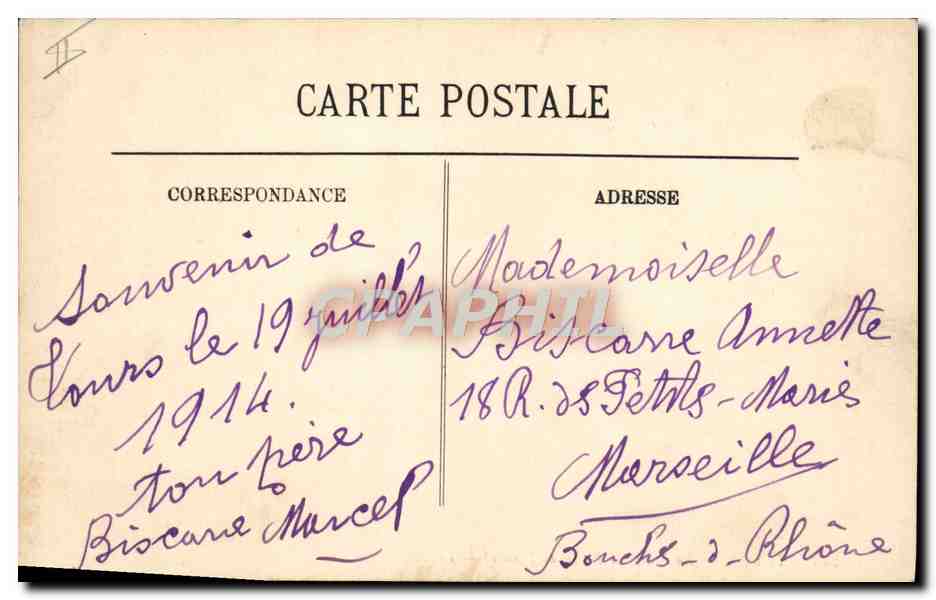 II
CARTE POSTALE
CORRESPONDANCE
Souvenir de
Tours le 19 juillet
1914.
ton père
Biscarre Marcel
ADRESSE
Mademoiselle
Biscarre Annette
18 R. des Petits-Maries
Marseille
Bouchs-d-Rhône
CPAPHIL